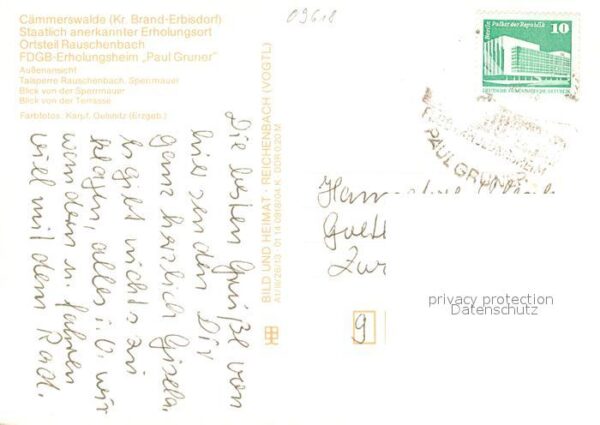 Cämmerswalde (Kr. Brand-Erbisdorf)
Staatlich anerkannter Erholungsort
Ortsteil Rauschenbach
FDGB-Erholungsheim „Paul Gruner"
Außenansicht
Talsperre Rauschenbach, Sperrmauer
Blick von der Sperrmauer
Blick von der Terrasse
Farbfotos: Karpf, Oelsnitz (Erzgeb.)
09618
Die besten Grüße von
hier senden Dir
ganz herzlich Gisela,
es gibt nichts zu
klagen, alles i. O. wir
wandern u. fahren
viel mit dem Rad.
BILD UND HEIMAT · REICHENBACH (VOGTL)
A1/III/26/13 01 14 0918/04 K DDR 0,20 M
Berlin Palast der Republik
10
DEUTSCHE DEMOKRATISCHE REPUBLIK
PAUL GRUNER
Zur
9
privacy protection
Datenschutz